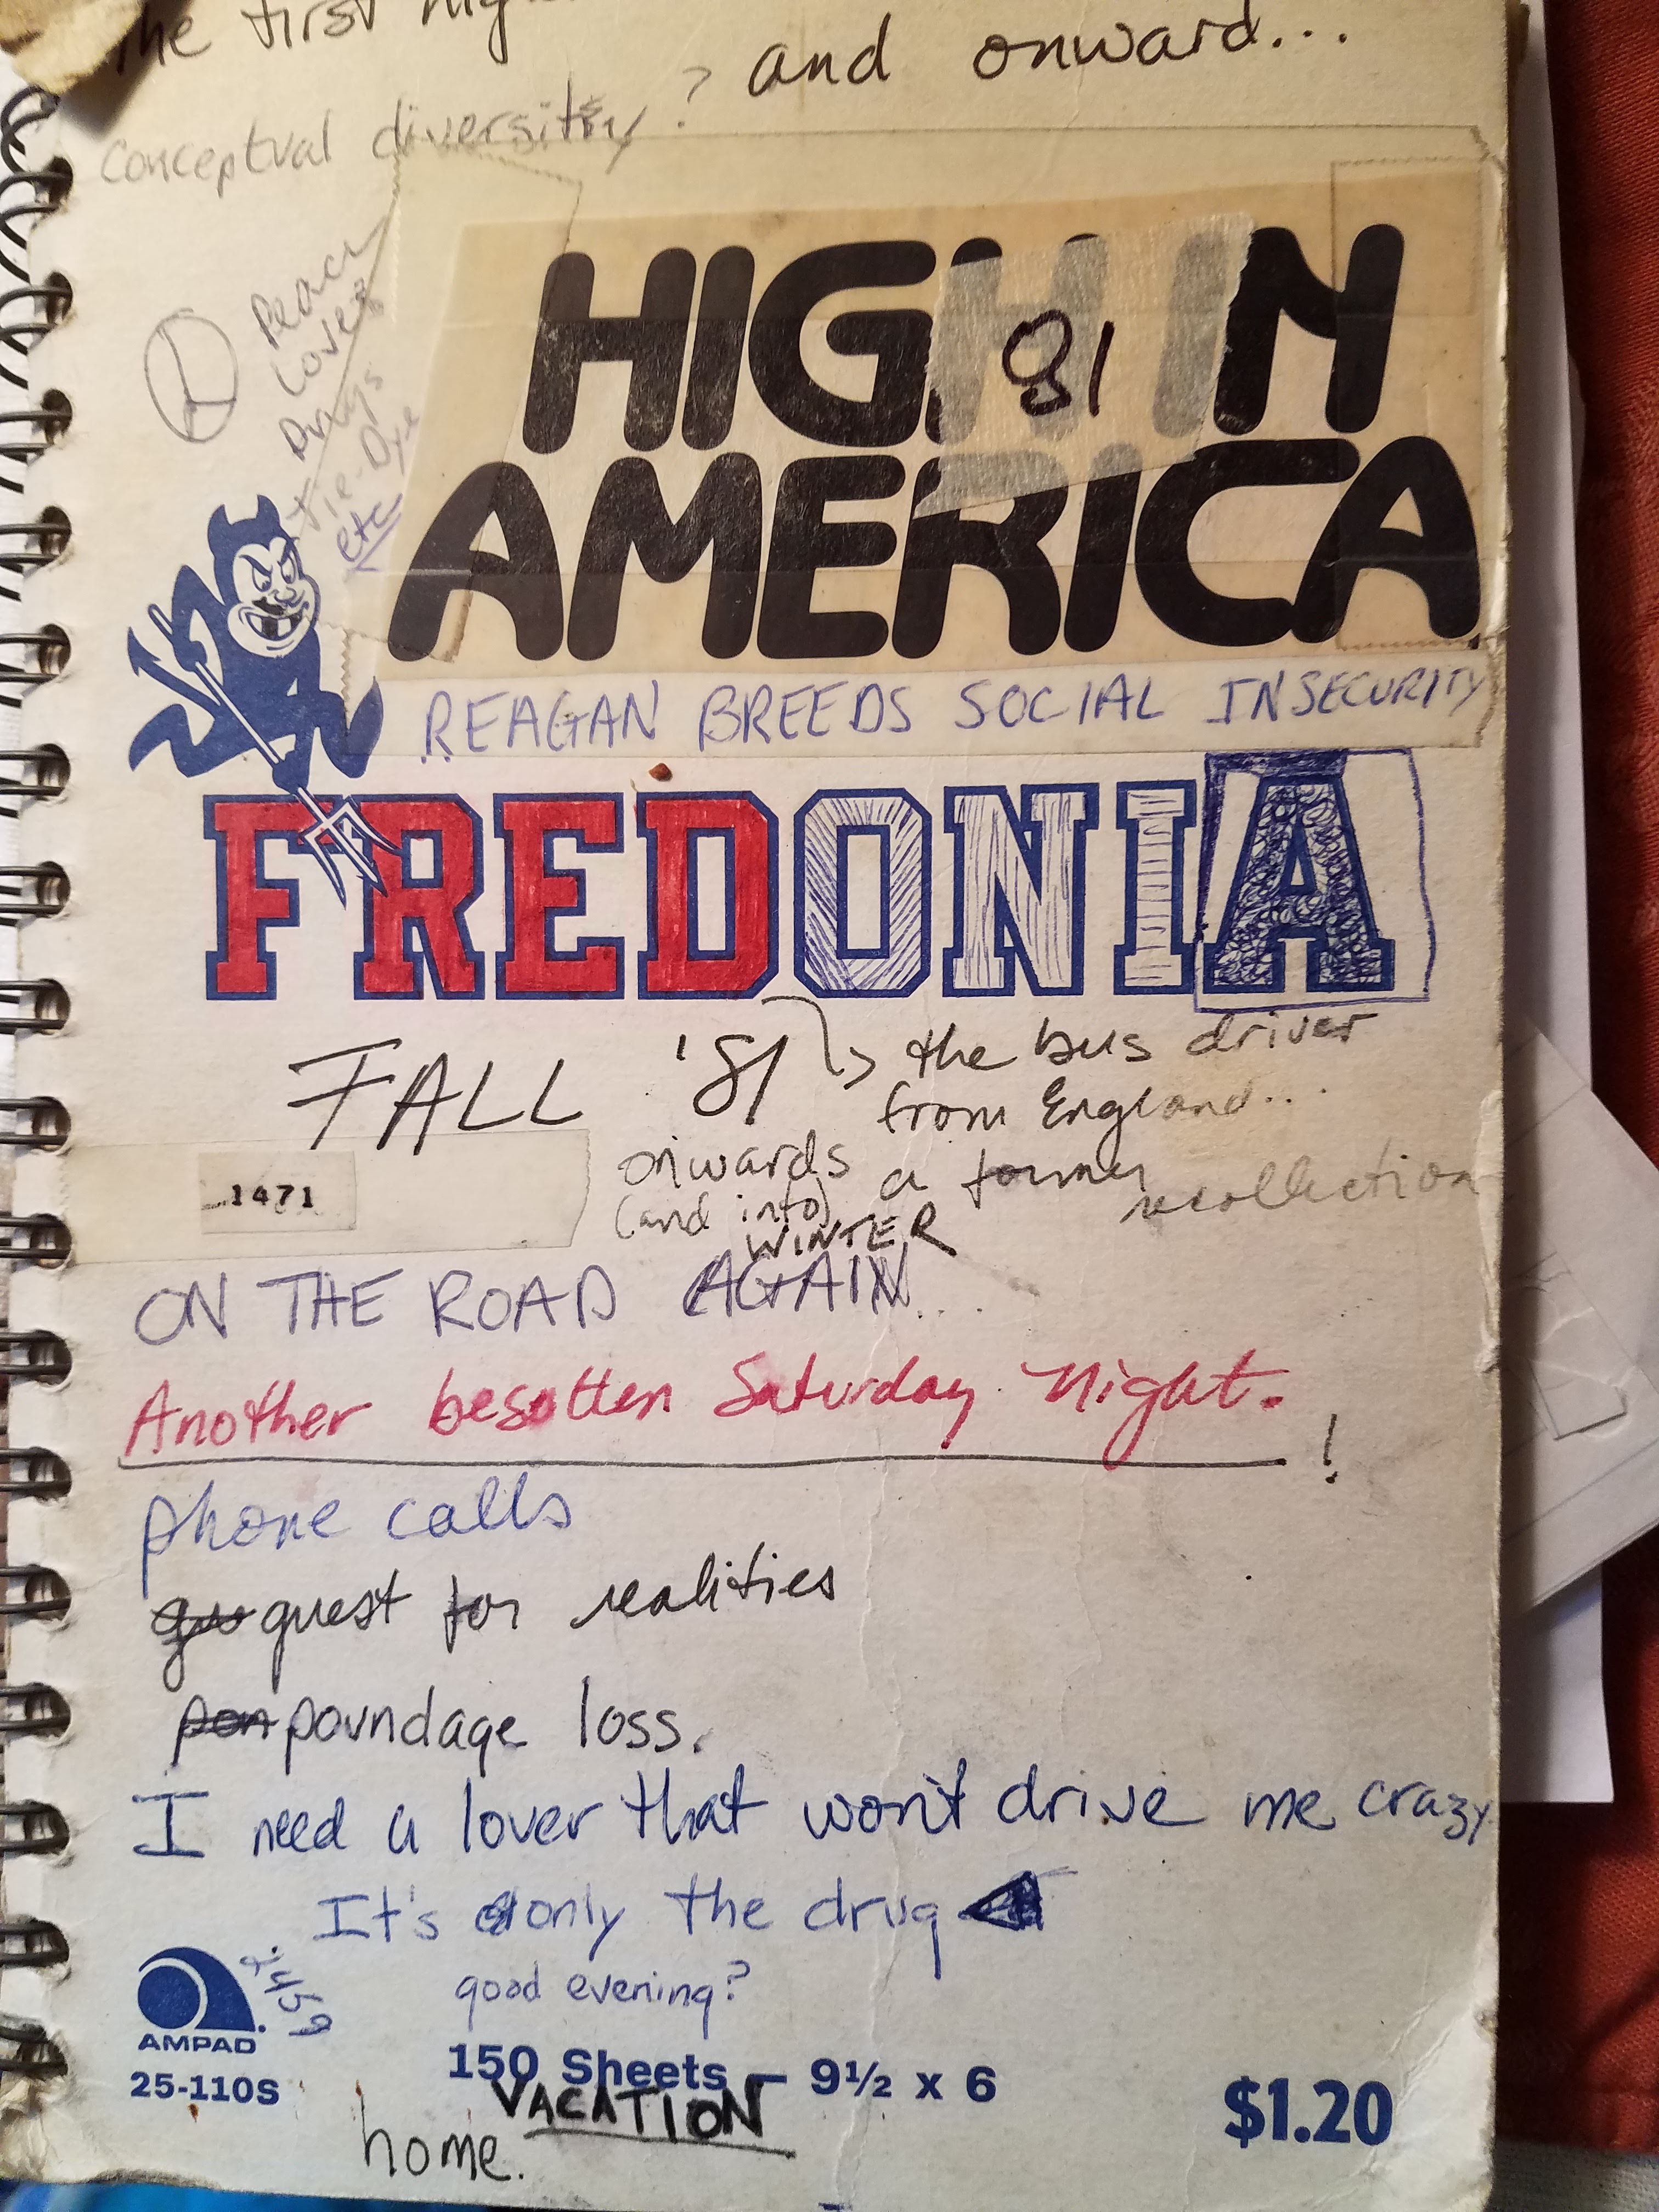 the first
and onward...
conceptual diversity?
Peace
Love &
Drugs
Tie-Dye
etc
HIGH IN
81
AMERICA
REAGAN BREEDS SOCIAL INSECURITY
FREDONIA
FALL '81
the bus driver
from England...
onwards
a former
recollection
(and into)
WINTER
1471
ON THE ROAD AGAIN...
Another besotten Saturday Night.
!
phone calls
quest for realities
poundage loss.
I need a lover that won't drive me crazy
It's only the drug
good evening?
2459
AMPAD
25-110S
150 Sheets — 9½ x 6
$1.20
VACATION
home.